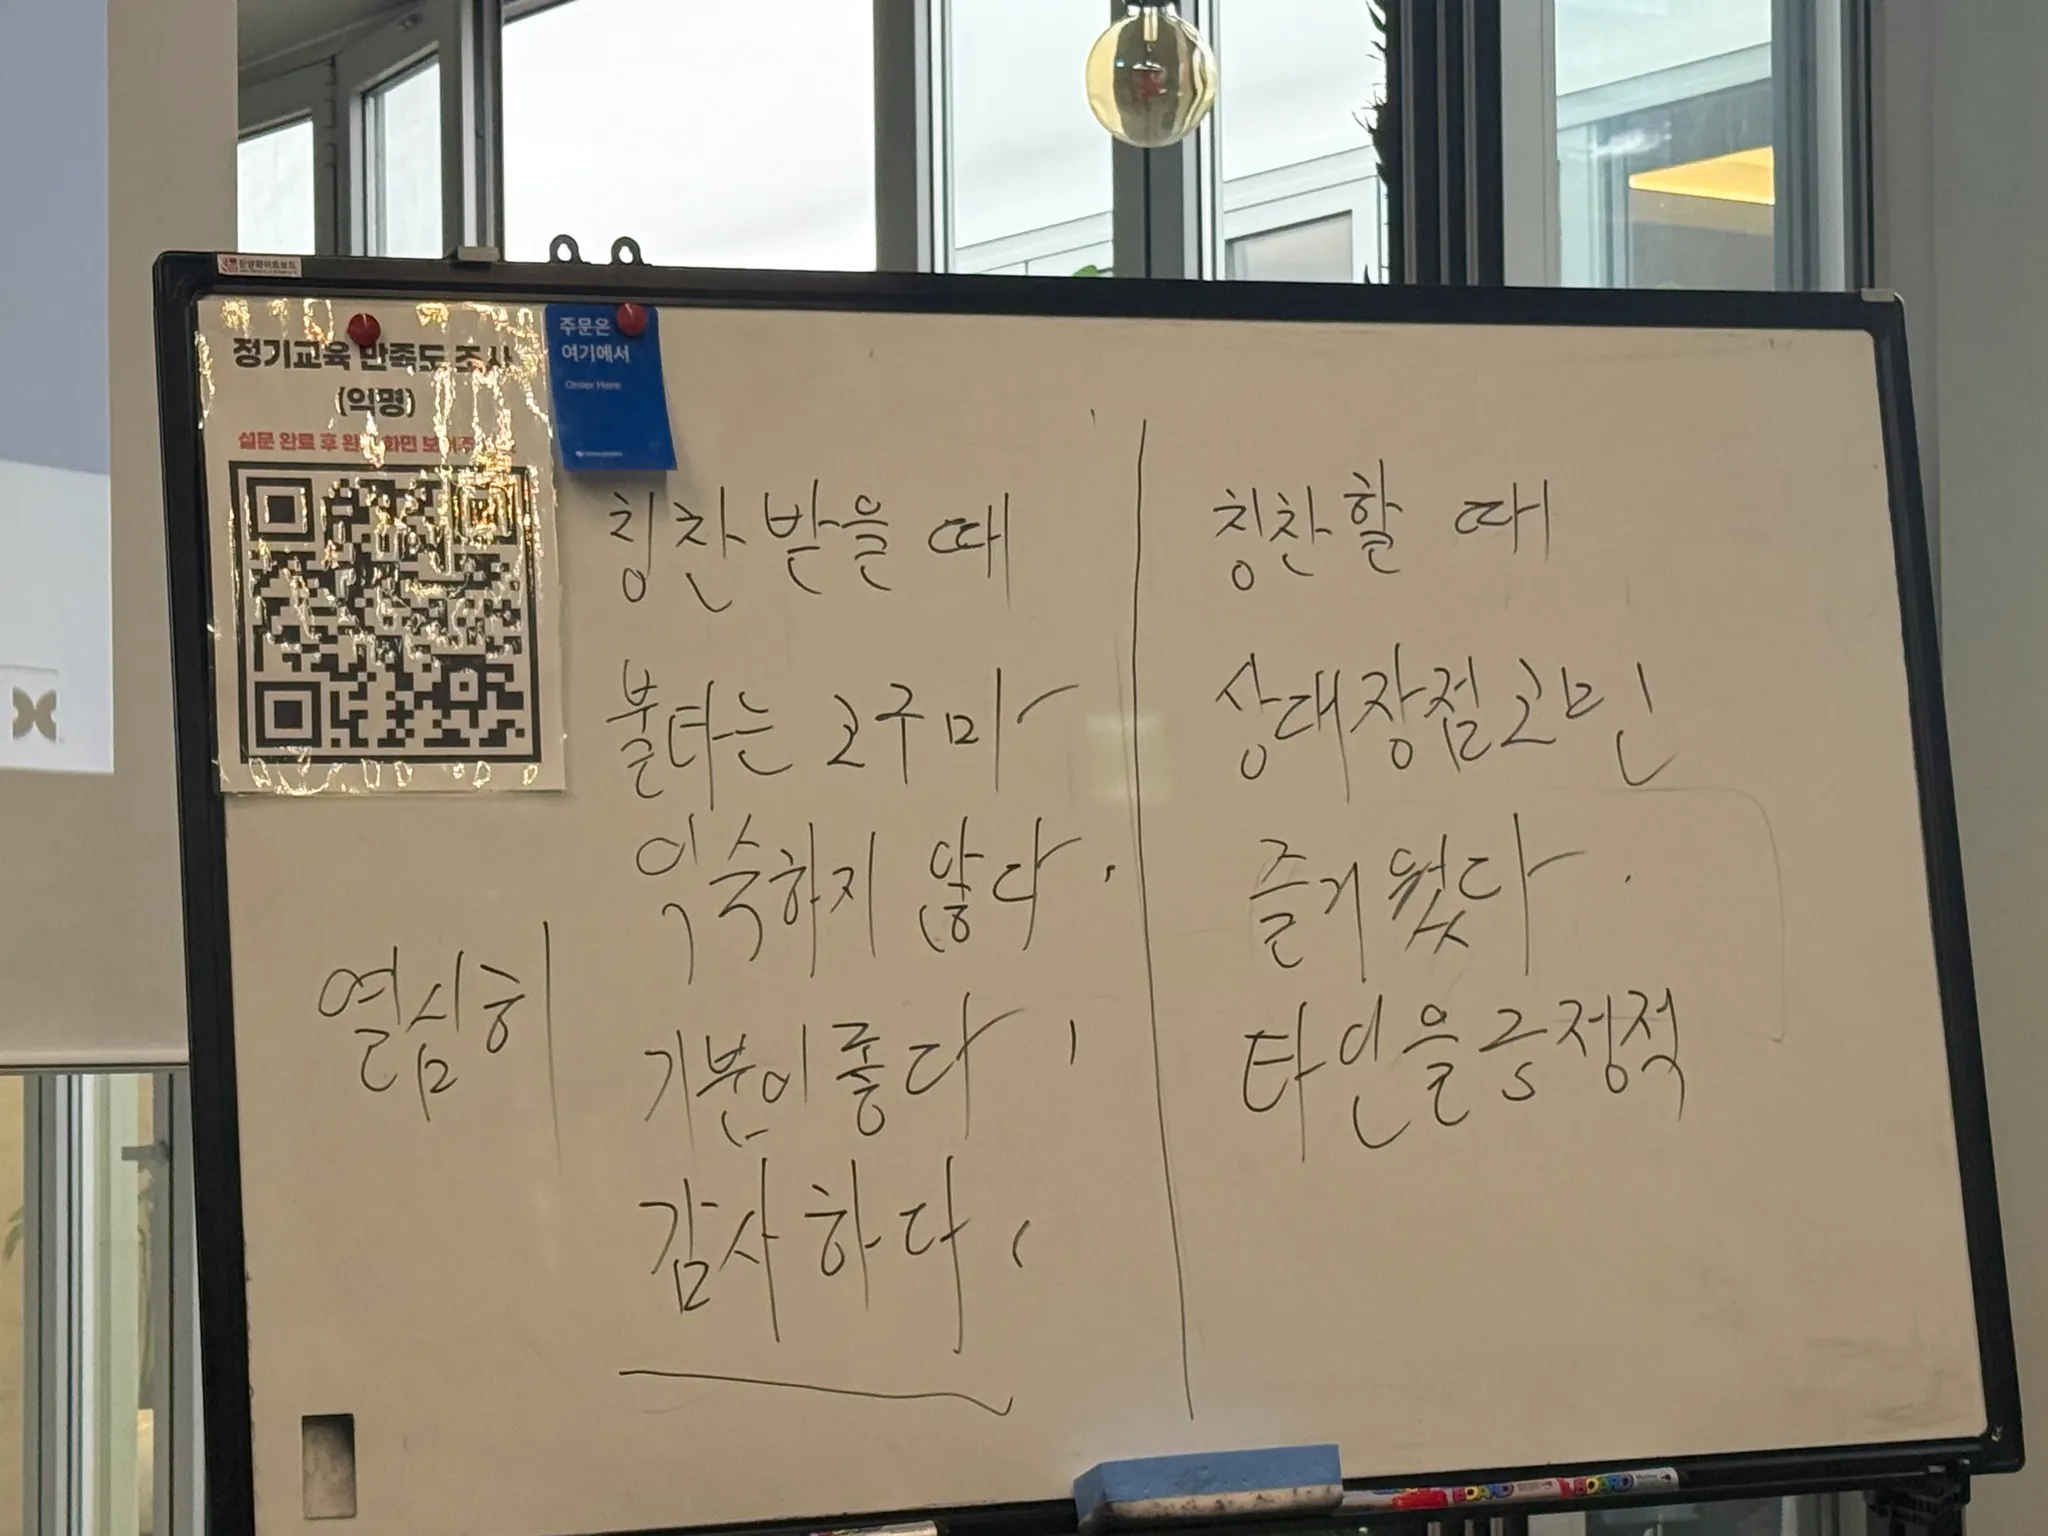 정기교육 만족도 조사
(익명)
설문 완료 후 완료 화면 보여주
주문은
여기에서
Order Here
칭찬 받을 때
불타는 고구마
익숙하지 않다.
기분이 좋다,
감사하다,
열심히
칭찬할 때
상대장점고민
즐거웠다.
타인을 긍정적
BOARD
BOARD